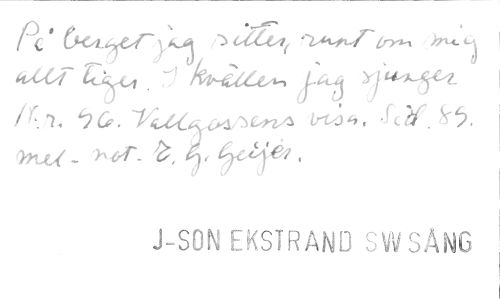 På berget jag sitter, runt om mig
allt tiger. I kvällen jag sjunger
N:r. 96. Vallgossens visa. Sid. 89.
mel - not - E. G. Geijer.
J-SON EKSTRAND SW SÅNG